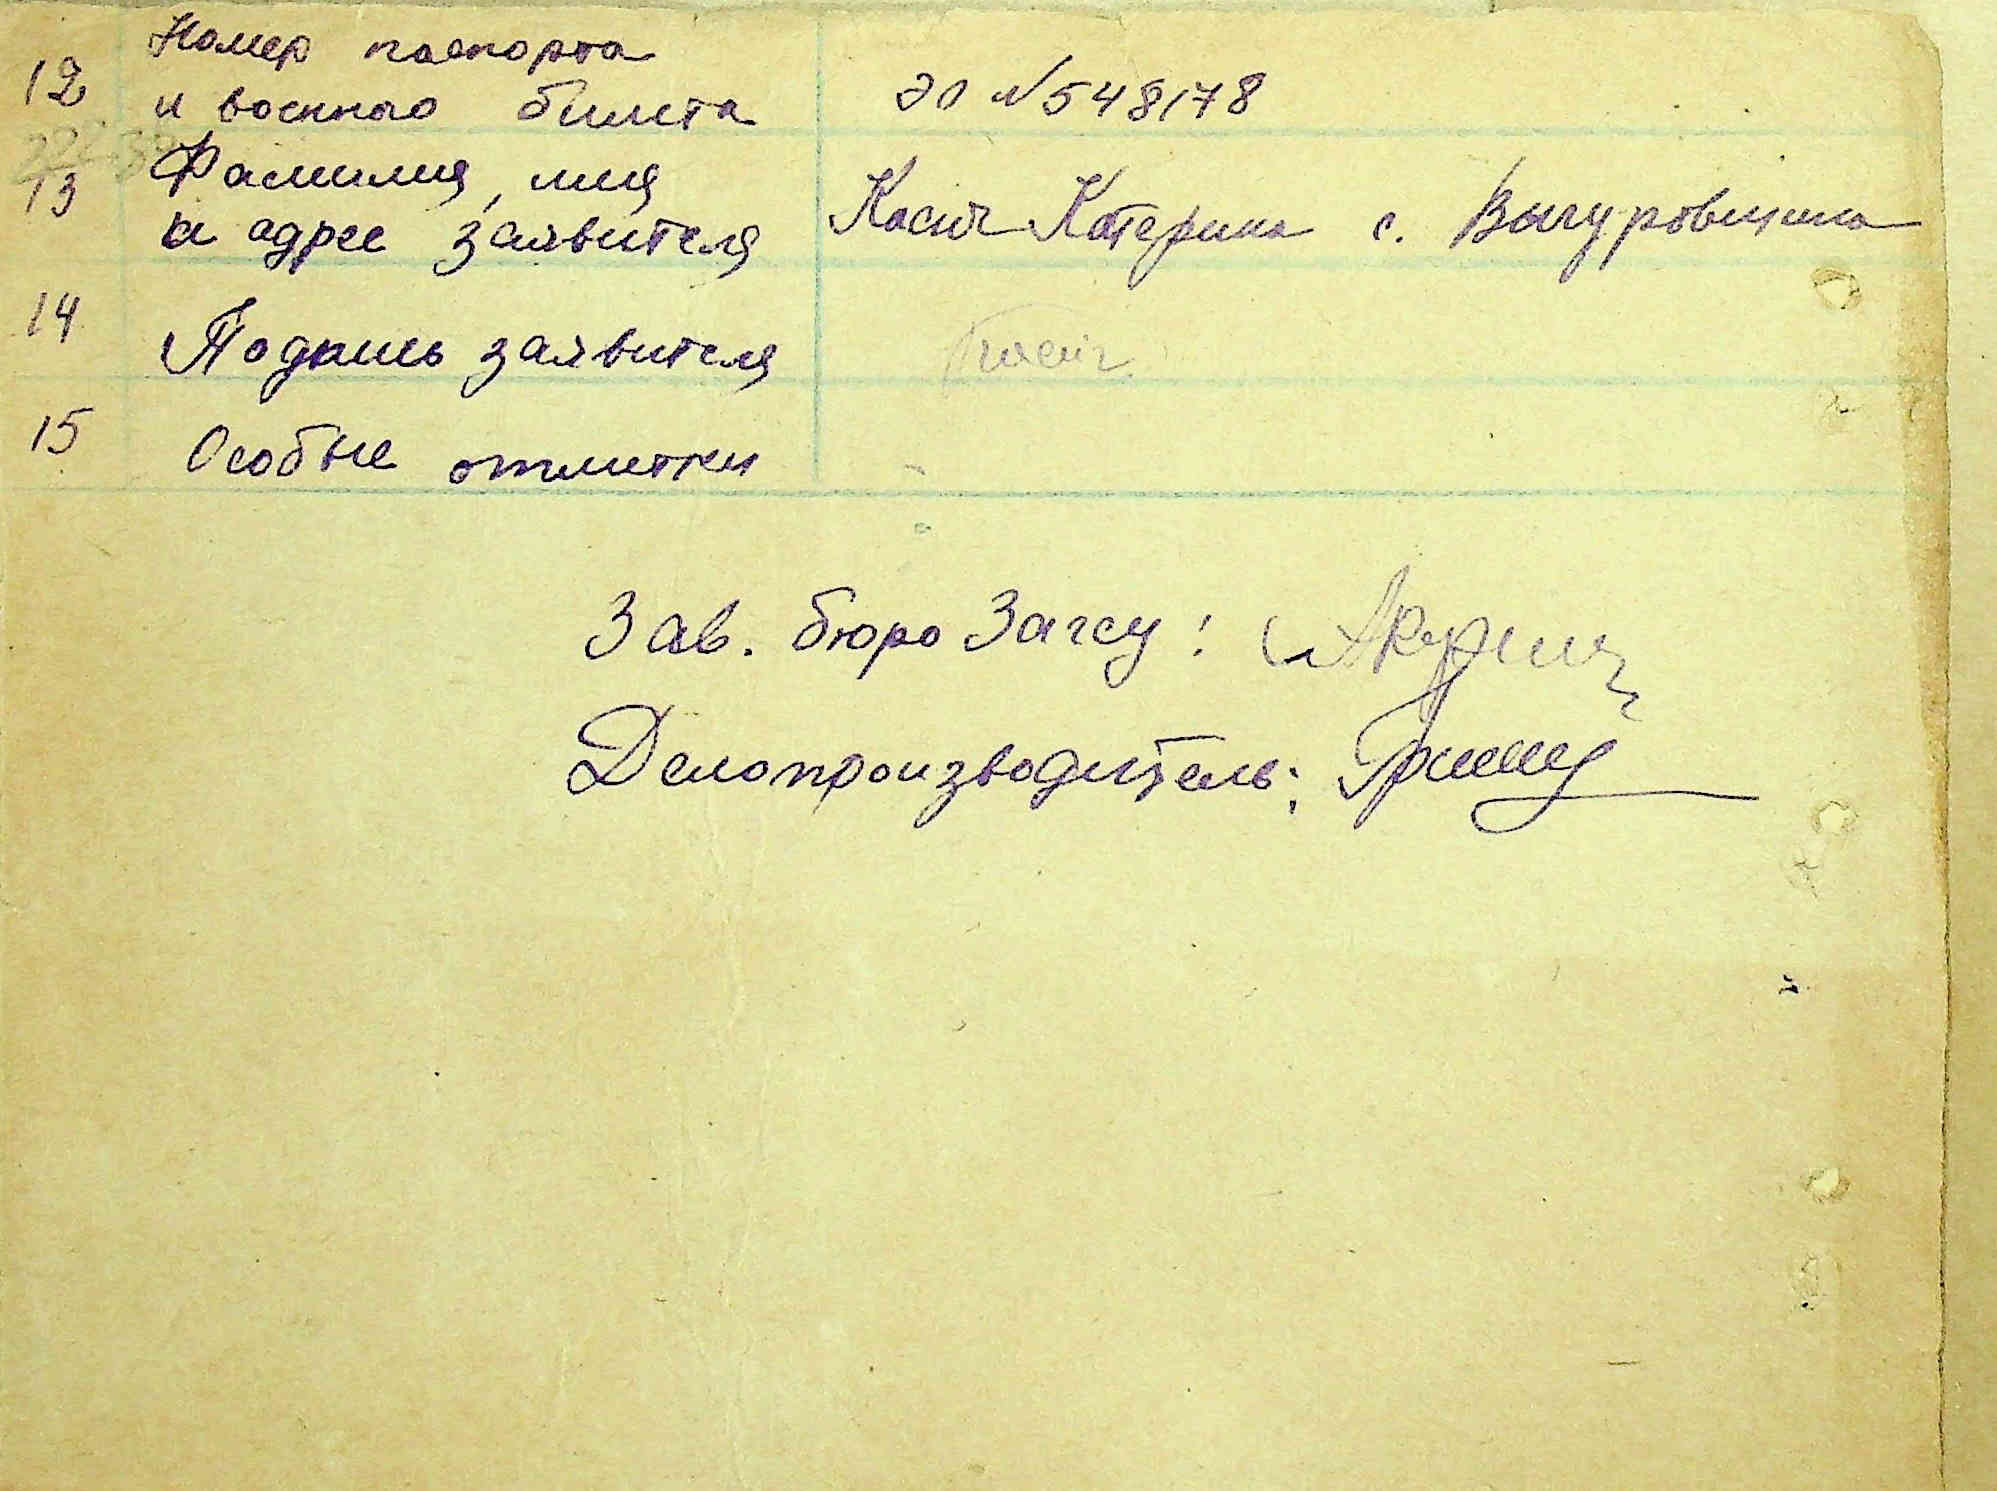 12 Номер паспорта
и военного билета ЭО №548178
13 Фамилия, имя
и адрес заявителя Касич Катерина с. Выгуровщина
14 Подпись заявителя Касіч
15 Особые отметки
Зав. бюро Загсу:
Делопроизводитель: